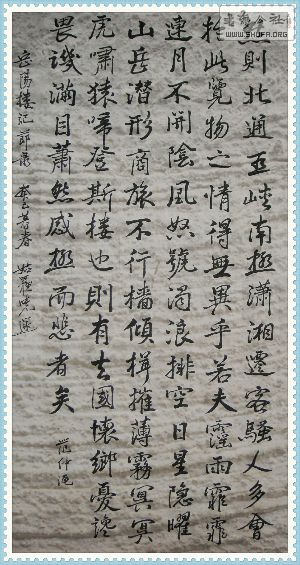 則北通巫峽南極瀟湘遷客騷人多會
於此覽物之情得無異乎若夫霪雨霏霏
連月不開陰風怒號濁浪排空日星隱曜
山岳潛形商旅不行檣傾楫摧薄霧冥冥
虎嘯猿啼登斯樓也則有去國懷鄉憂讒
畏譏滿目蕭然感極而悲者矣 范仲淹
岳陽樓記節錄
WWW.SHUFA.ORG